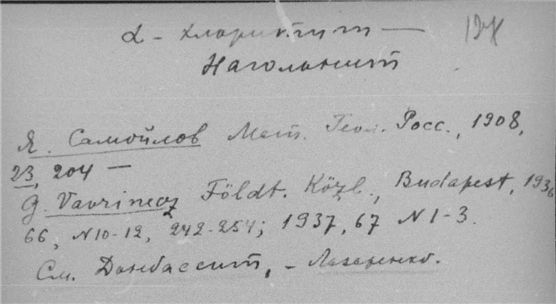 α - хлоритит — 124
Наголонит
Я. Самойлов Мат. Геол. Росс., 1908,
23, 204 —
G. Vavrinecz Földt. Közl., Budapest, 1936
66, N10-12, 242-254; 1937, 67 N 1-3.
См. Донбассит, - Лазаренко.